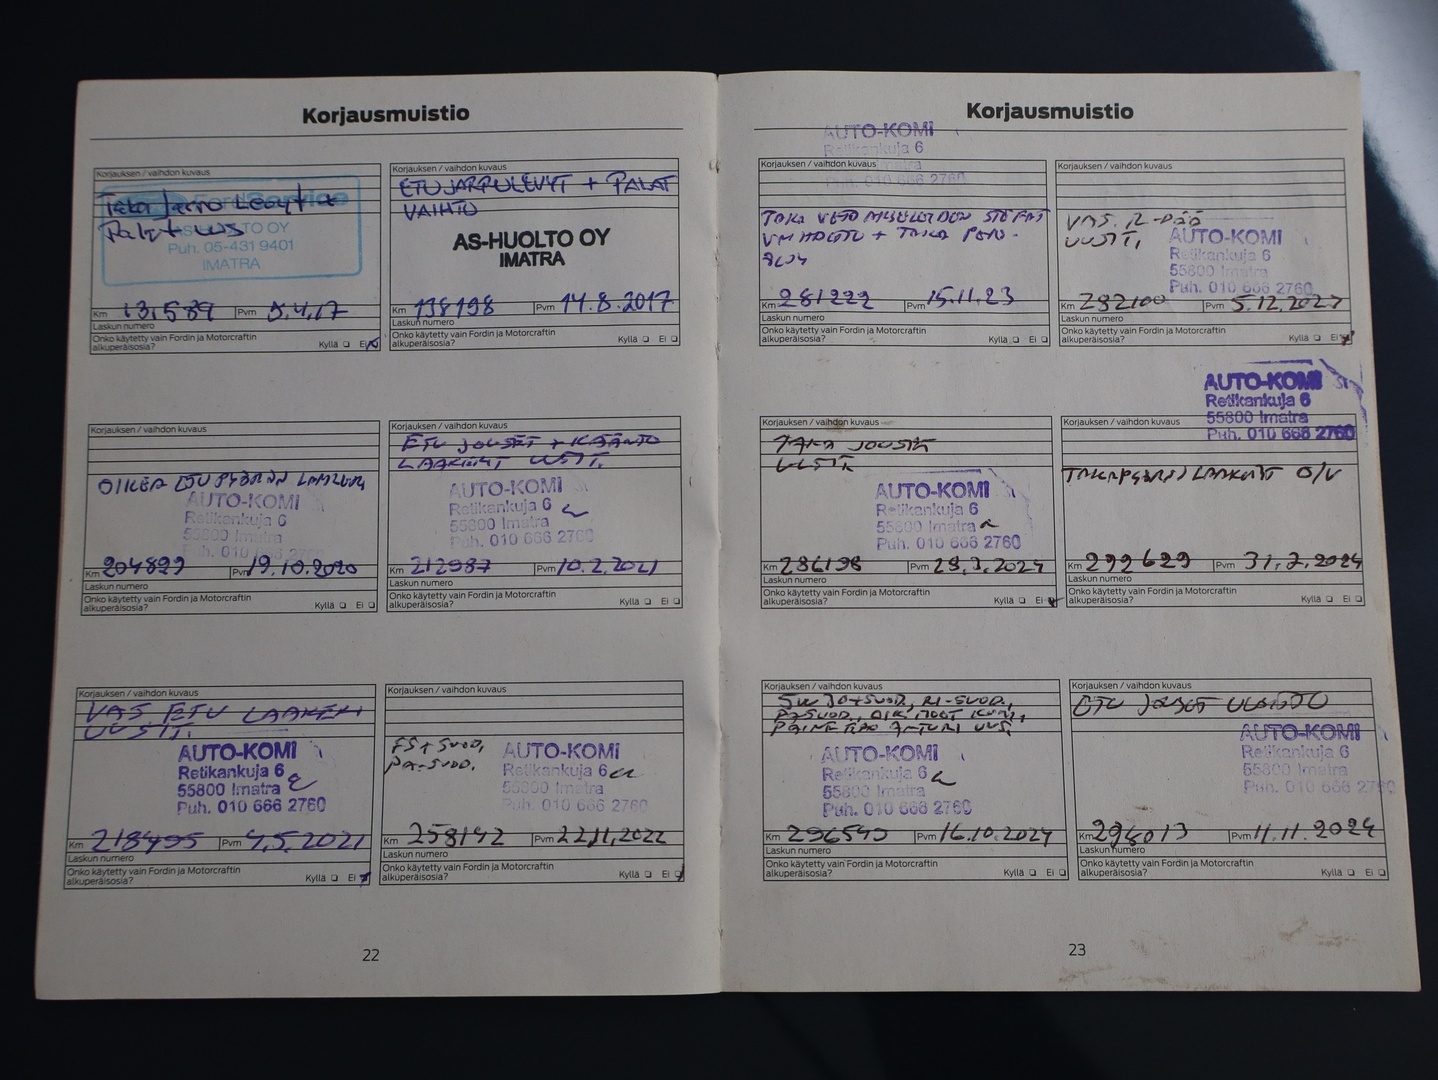 Korjausmuistio
Korjauksen / vaihdon kuvaus
OY
Puh. 05-431 9401
IMATRA
Km 131589 Pvm 5.4.17
Laskun numero
Onko käytetty vain Fordin ja Motorcraftin
alkuperäisosia? Kyllä Ei
Korjauksen / vaihdon kuvaus
ETUJARRULEVYT + PALAT
VAIHTO
AS-HUOLTO OY
IMATRA
Km 138198 Pvm 14.8.2017
Laskun numero
Onko käytetty vain Fordin ja Motorcraftin
alkuperäisosia? Kyllä Ei
Korjauksen / vaihdon kuvaus
OIKEA ETU PYÖRÄN
AUTO-KOMI
Retikankuja 6
55800 Imatra
Puh. 010 666 2760
Km 204899 Pvm 19.10.2020
Laskun numero
Onko käytetty vain Fordin ja Motorcraftin
alkuperäisosia? Kyllä Ei
Korjauksen / vaihdon kuvaus
ETU JOUSET + KÄÄNTÖ
LAAKERIT UUSIT.
AUTO-KOMI
Retikankuja 6
55800 Imatra
Puh. 010 666 2760
Km 212987 Pvm 10.2.2021
Laskun numero
Onko käytetty vain Fordin ja Motorcraftin
alkuperäisosia? Kyllä Ei
Korjauksen / vaihdon kuvaus
VAS ETU LAAKERI
UUSIT.
AUTO-KOMI
Retikankuja 6
55800 Imatra
Puh. 010 666 2760
Km 218495 Pvm 4.5.2021
Laskun numero
Onko käytetty vain Fordin ja Motorcraftin
alkuperäisosia? Kyllä Ei
Korjauksen / vaihdon kuvaus
AUTO-KOMI
Retikankuja 6
55800 Imatra
Puh. 010 666 2760
Km 258142 Pvm 22.11.2022
Laskun numero
Onko käytetty vain Fordin ja Motorcraftin
alkuperäisosia? Kyllä Ei
22
Korjausmuistio
AUTO-KOMI
Retikankuja 6
Puh. 010 666 2760
Korjauksen / vaihdon kuvaus
TAKA
+ TAKA
Km 281222 Pvm 15.11.23
Laskun numero
Onko käytetty vain Fordin ja Motorcraftin
alkuperäisosia? Kyllä Ei
Korjauksen / vaihdon kuvaus
VAS. R-PÄÄ
UUSIT.
AUTO-KOMI
Retikankuja 6
55800 Imatra
Puh. 010 666 2760
Km 282100 Pvm 5.12.2023
Laskun numero
Onko käytetty vain Fordin ja Motorcraftin
alkuperäisosia? Kyllä Ei
Korjauksen / vaihdon kuvaus
TAKA JOUSIA
AUTO-KOMI
Retikankuja 6
55800 Imatra
Puh. 010 666 2760
Km 286198 Pvm 28.3.2024
Laskun numero
Onko käytetty vain Fordin ja Motorcraftin
alkuperäisosia? Kyllä Ei
AUTO-KOMI
Retikankuja 6
55800 Imatra
Puh. 010 666 2760
Korjauksen / vaihdon kuvaus
TAKAPYÖRÄN LAAKERIT O/V
Km 292629 Pvm 2024
Laskun numero
Onko käytetty vain Fordin ja Motorcraftin
alkuperäisosia? Kyllä Ei
Korjauksen / vaihdon kuvaus
AUTO-KOMI
Retikankuja 6
55800 Imatra
Puh. 010 666 2760
Km 296545 Pvm 16.10.2024
Laskun numero
Onko käytetty vain Fordin ja Motorcraftin
alkuperäisosia? Kyllä Ei
Korjauksen / vaihdon kuvaus
ETU JOUSET
AUTO-KOMI
Retikankuja 6
55800 Imatra
Puh. 010 666 2760
Km 298013 Pvm 11.11.2024
Laskun numero
Onko käytetty vain Fordin ja Motorcraftin
alkuperäisosia? Kyllä Ei
23